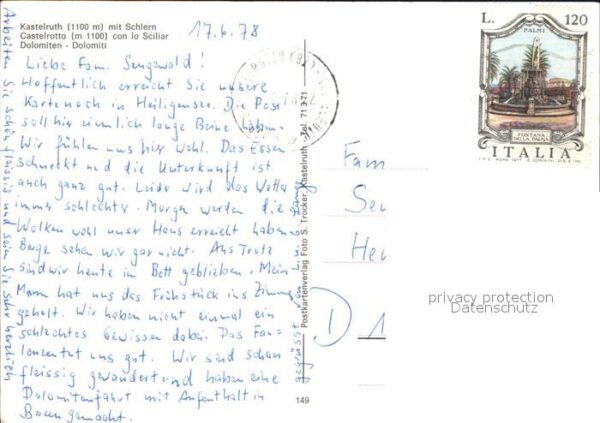 Kastelruth (1100 m) mit Schlern
Castelrotto (m 1100) con lo Sciliar
Dolomiten - Dolomiti
17.6.78
Liebe Fam. Sengewald!
Hoffentlich erreicht Sie unsere
Karte noch in Heiligensee. Die Post
soll hier ziemlich lange Beine haben.
Wir fühlen uns hier wohl. Das Essen
schmeckt und die Unterkunft ist
auch ganz gut. Leider wird das Wetter
immer schlechter. Morgen werden die
Wolken wohl unser Haus erreicht haben.
Berge sehen wir gar nicht. Aus Trotz
sind wir heute im Bett geblieben. Mein
Mann hat uns das Frühstück ins Zimmer
geholt. Wir haben nicht einmal ein
schlechtes Gewissen dabei. Das Fau-
lenzen tut uns gut. Wir sind schon
fleissig gewandert und haben eine
Dolomitenfahrt mit Aufenthalt in
Bozen gemacht.
Arbeiten Sie schön fleissig und seien Sie sehr herzlich
gegrüsst von
Postkartenverlag Foto S. Trocker, Kastelruth, Tel. 71371
149
L. 120
PALMI
FONTANA
DELLA PALMA
ITALIA
Fam
Se
He
D 1
privacy protection
Datenschutz